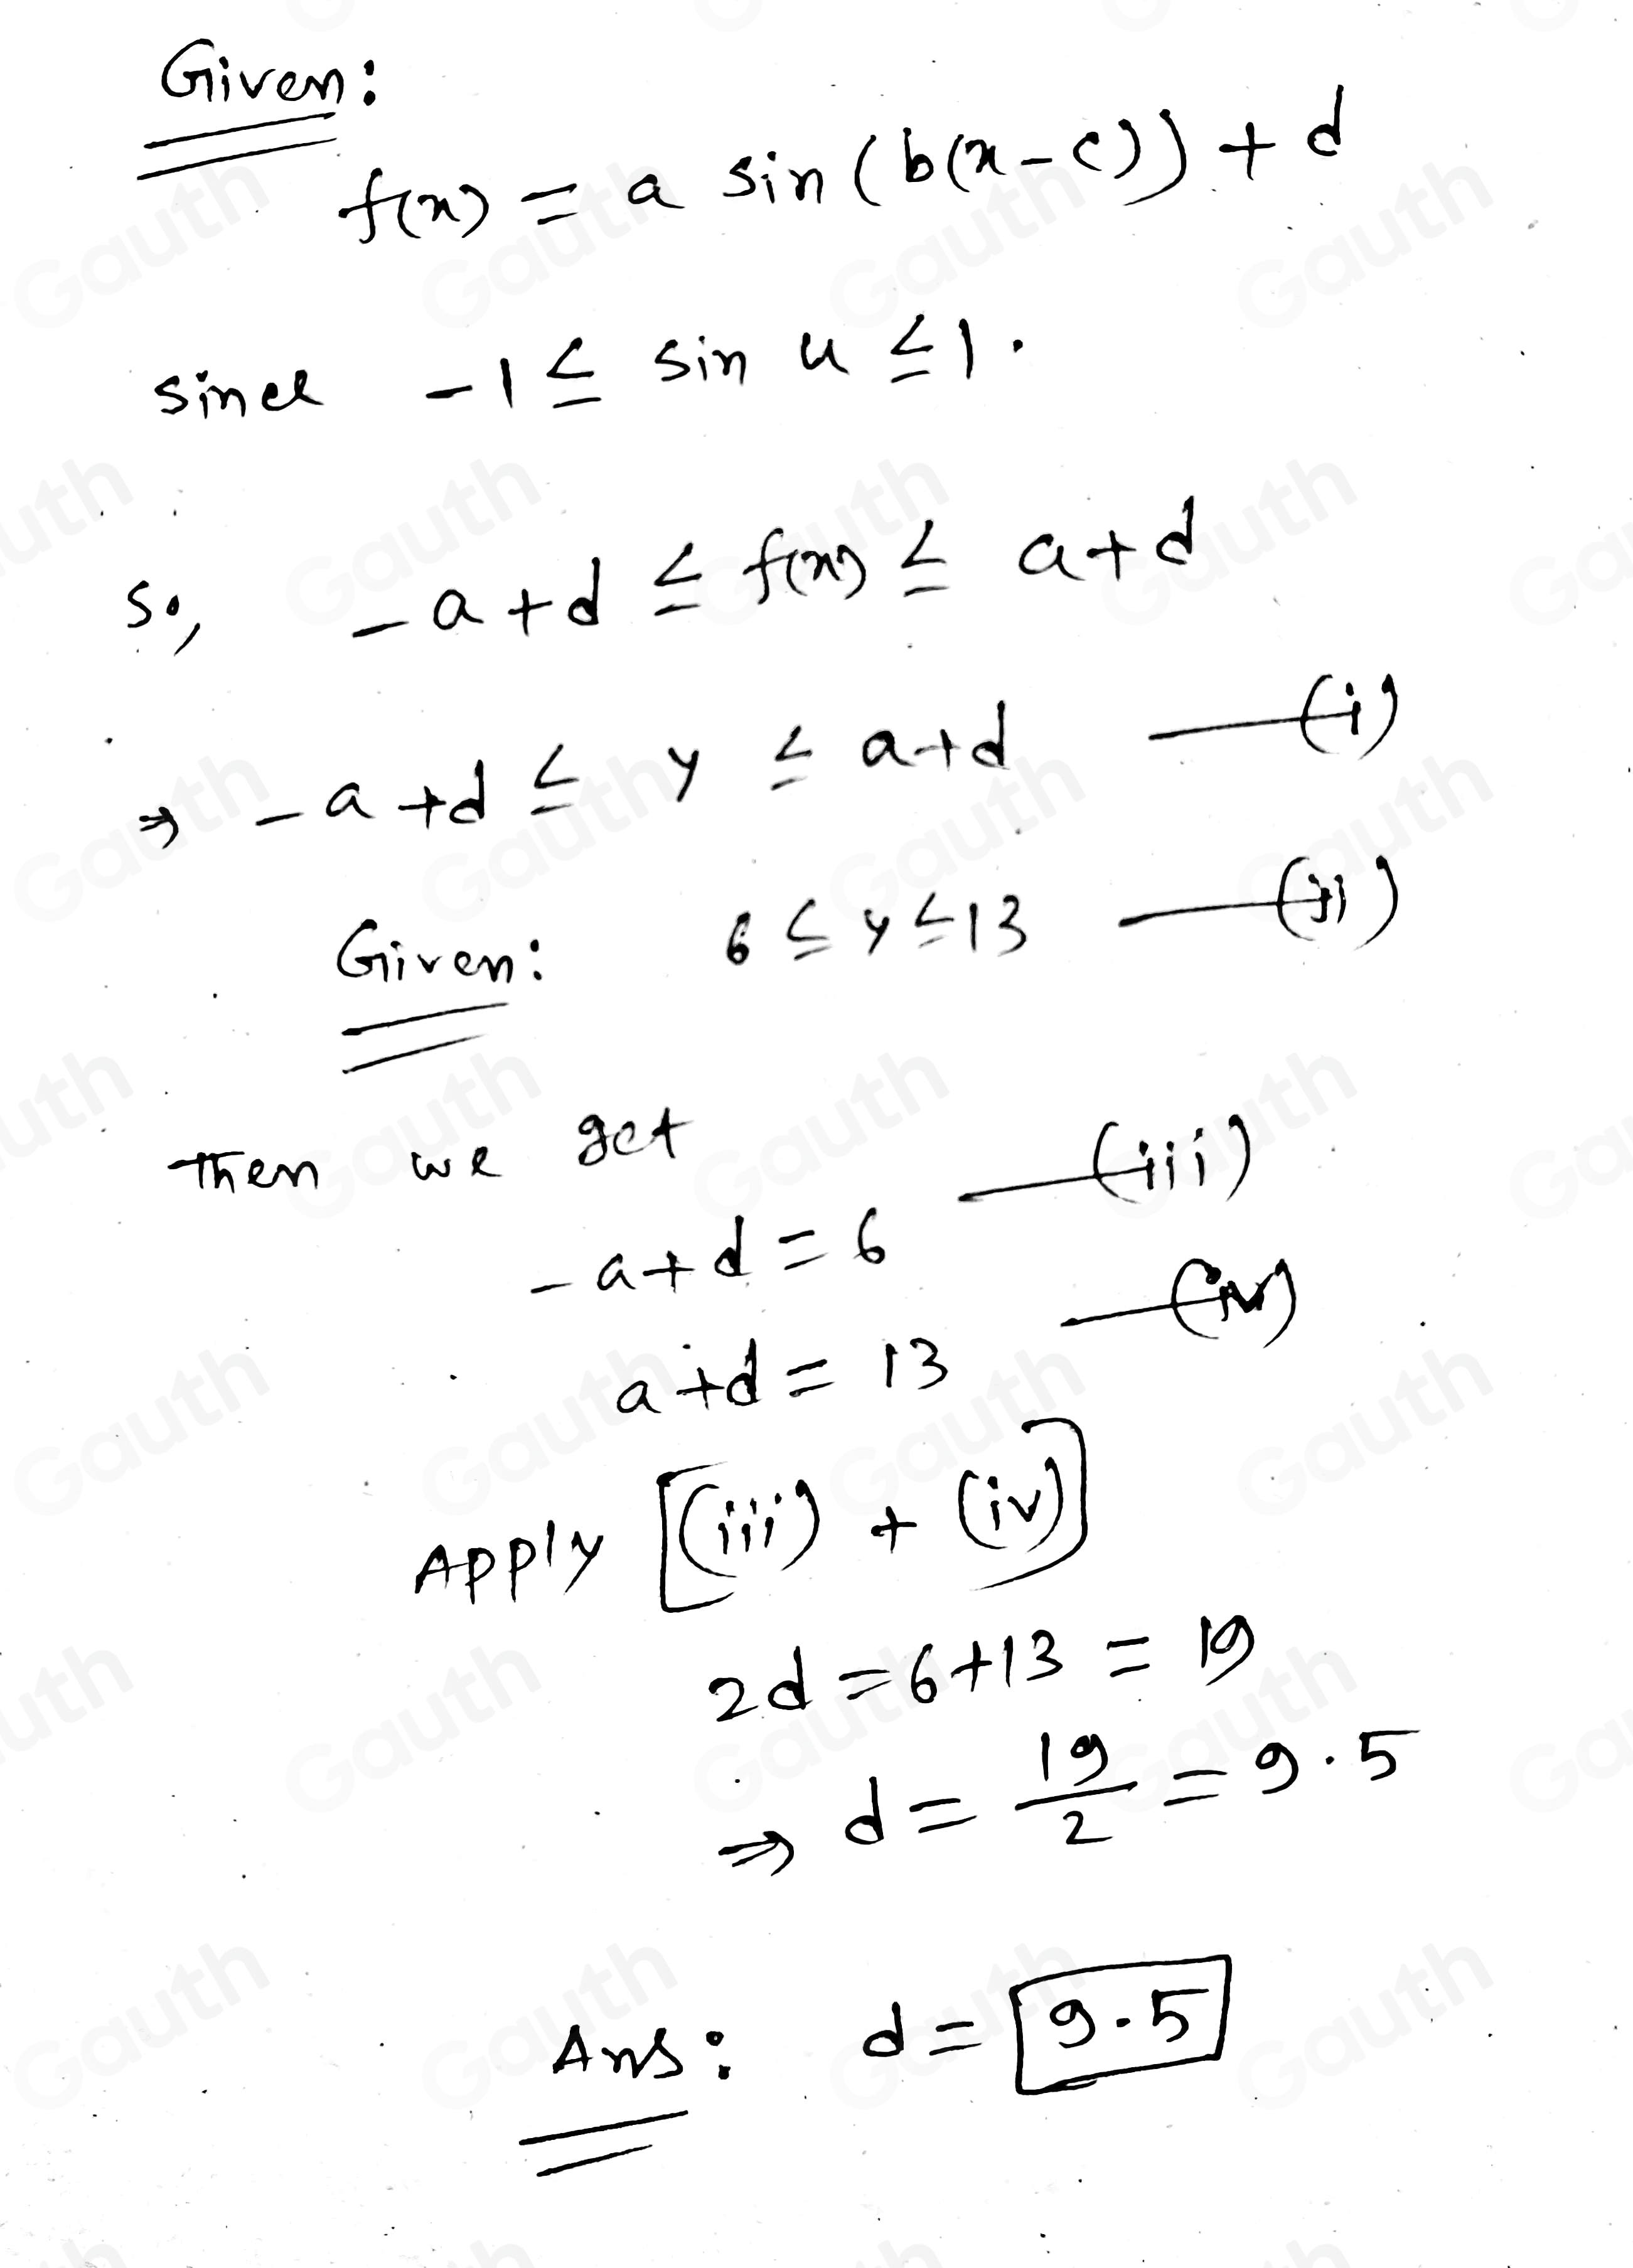 Given:
f(x) = a sin(b(x-c)) + d
since -1 ≤ sin u ≤ 1.
So, -a+d ≤ f(x) ≤ a+d
⇒ -a+d ≤ y ≤ a+d —(i)
Given: 6 ≤ y ≤ 13 —(ii)
Then we get
-a+d = 6 —(iii)
a+d = 13 —(iv)
Apply [(iii) + (iv)]
2d = 6+13 = 19
⇒ d = 19/2 = 9.5
Ans: d = 9.5